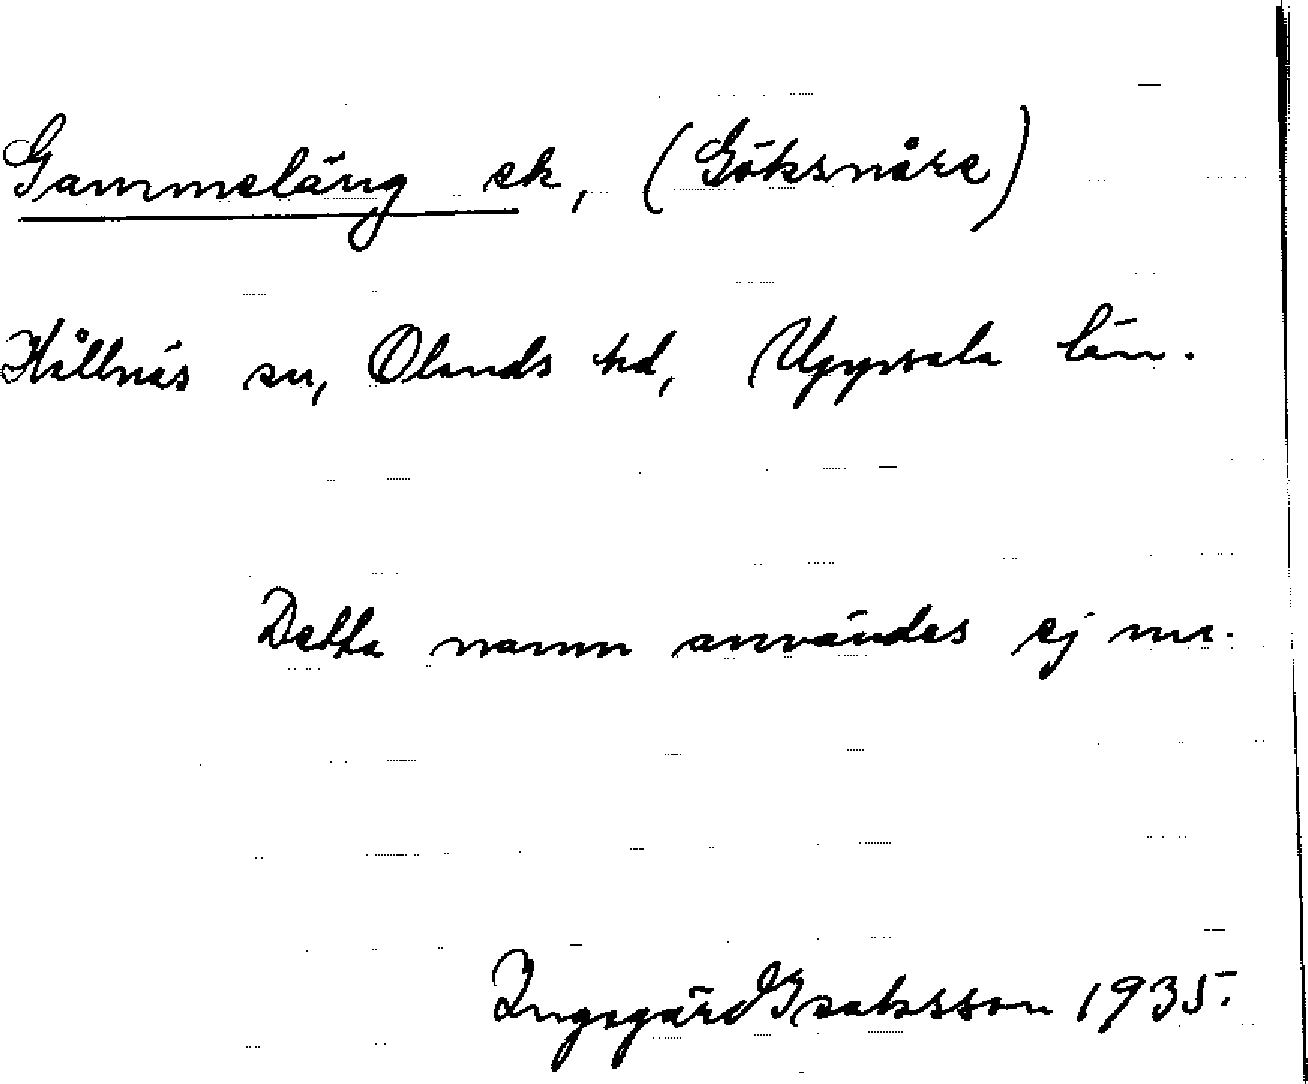 Gammeläng ek, (Göksnåre)
Hållnäs sn, Olands hd, Uppsala län.
Detta namn användes ej nu.
Ingegärd Isaksson 1935.